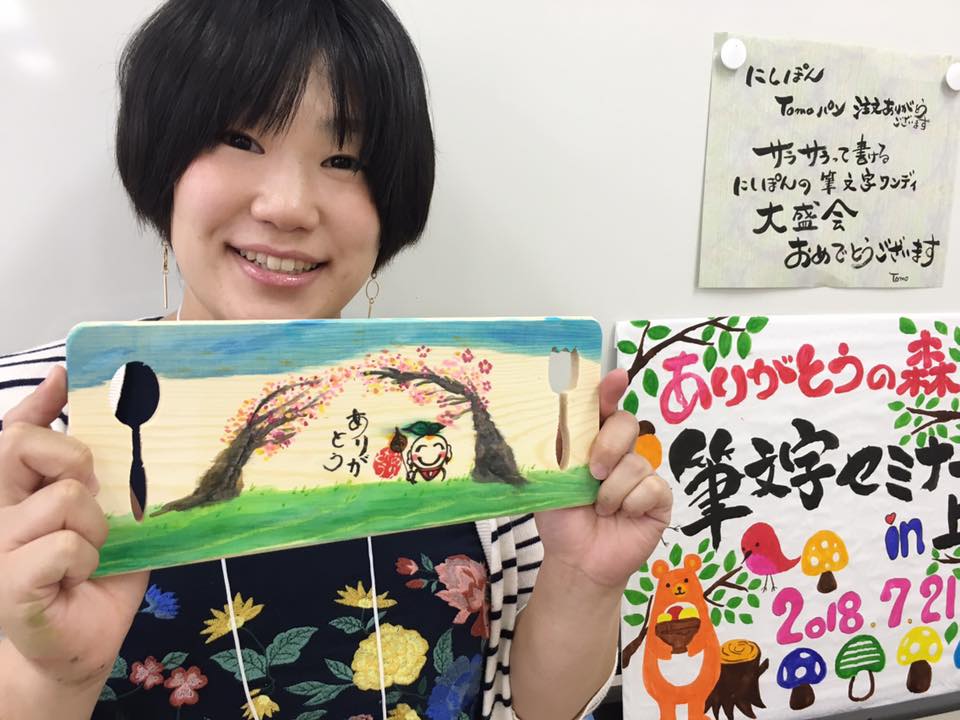 にしぽん
Tomoパン 注文ありがとう
ございます
サラサラって書ける
にしぽんの 筆文字ワンディ
大盛会
おめでとうございます
Tomo
ありがとうの森
筆文字セミナー
in 上
2018.7.21
ありが
とう